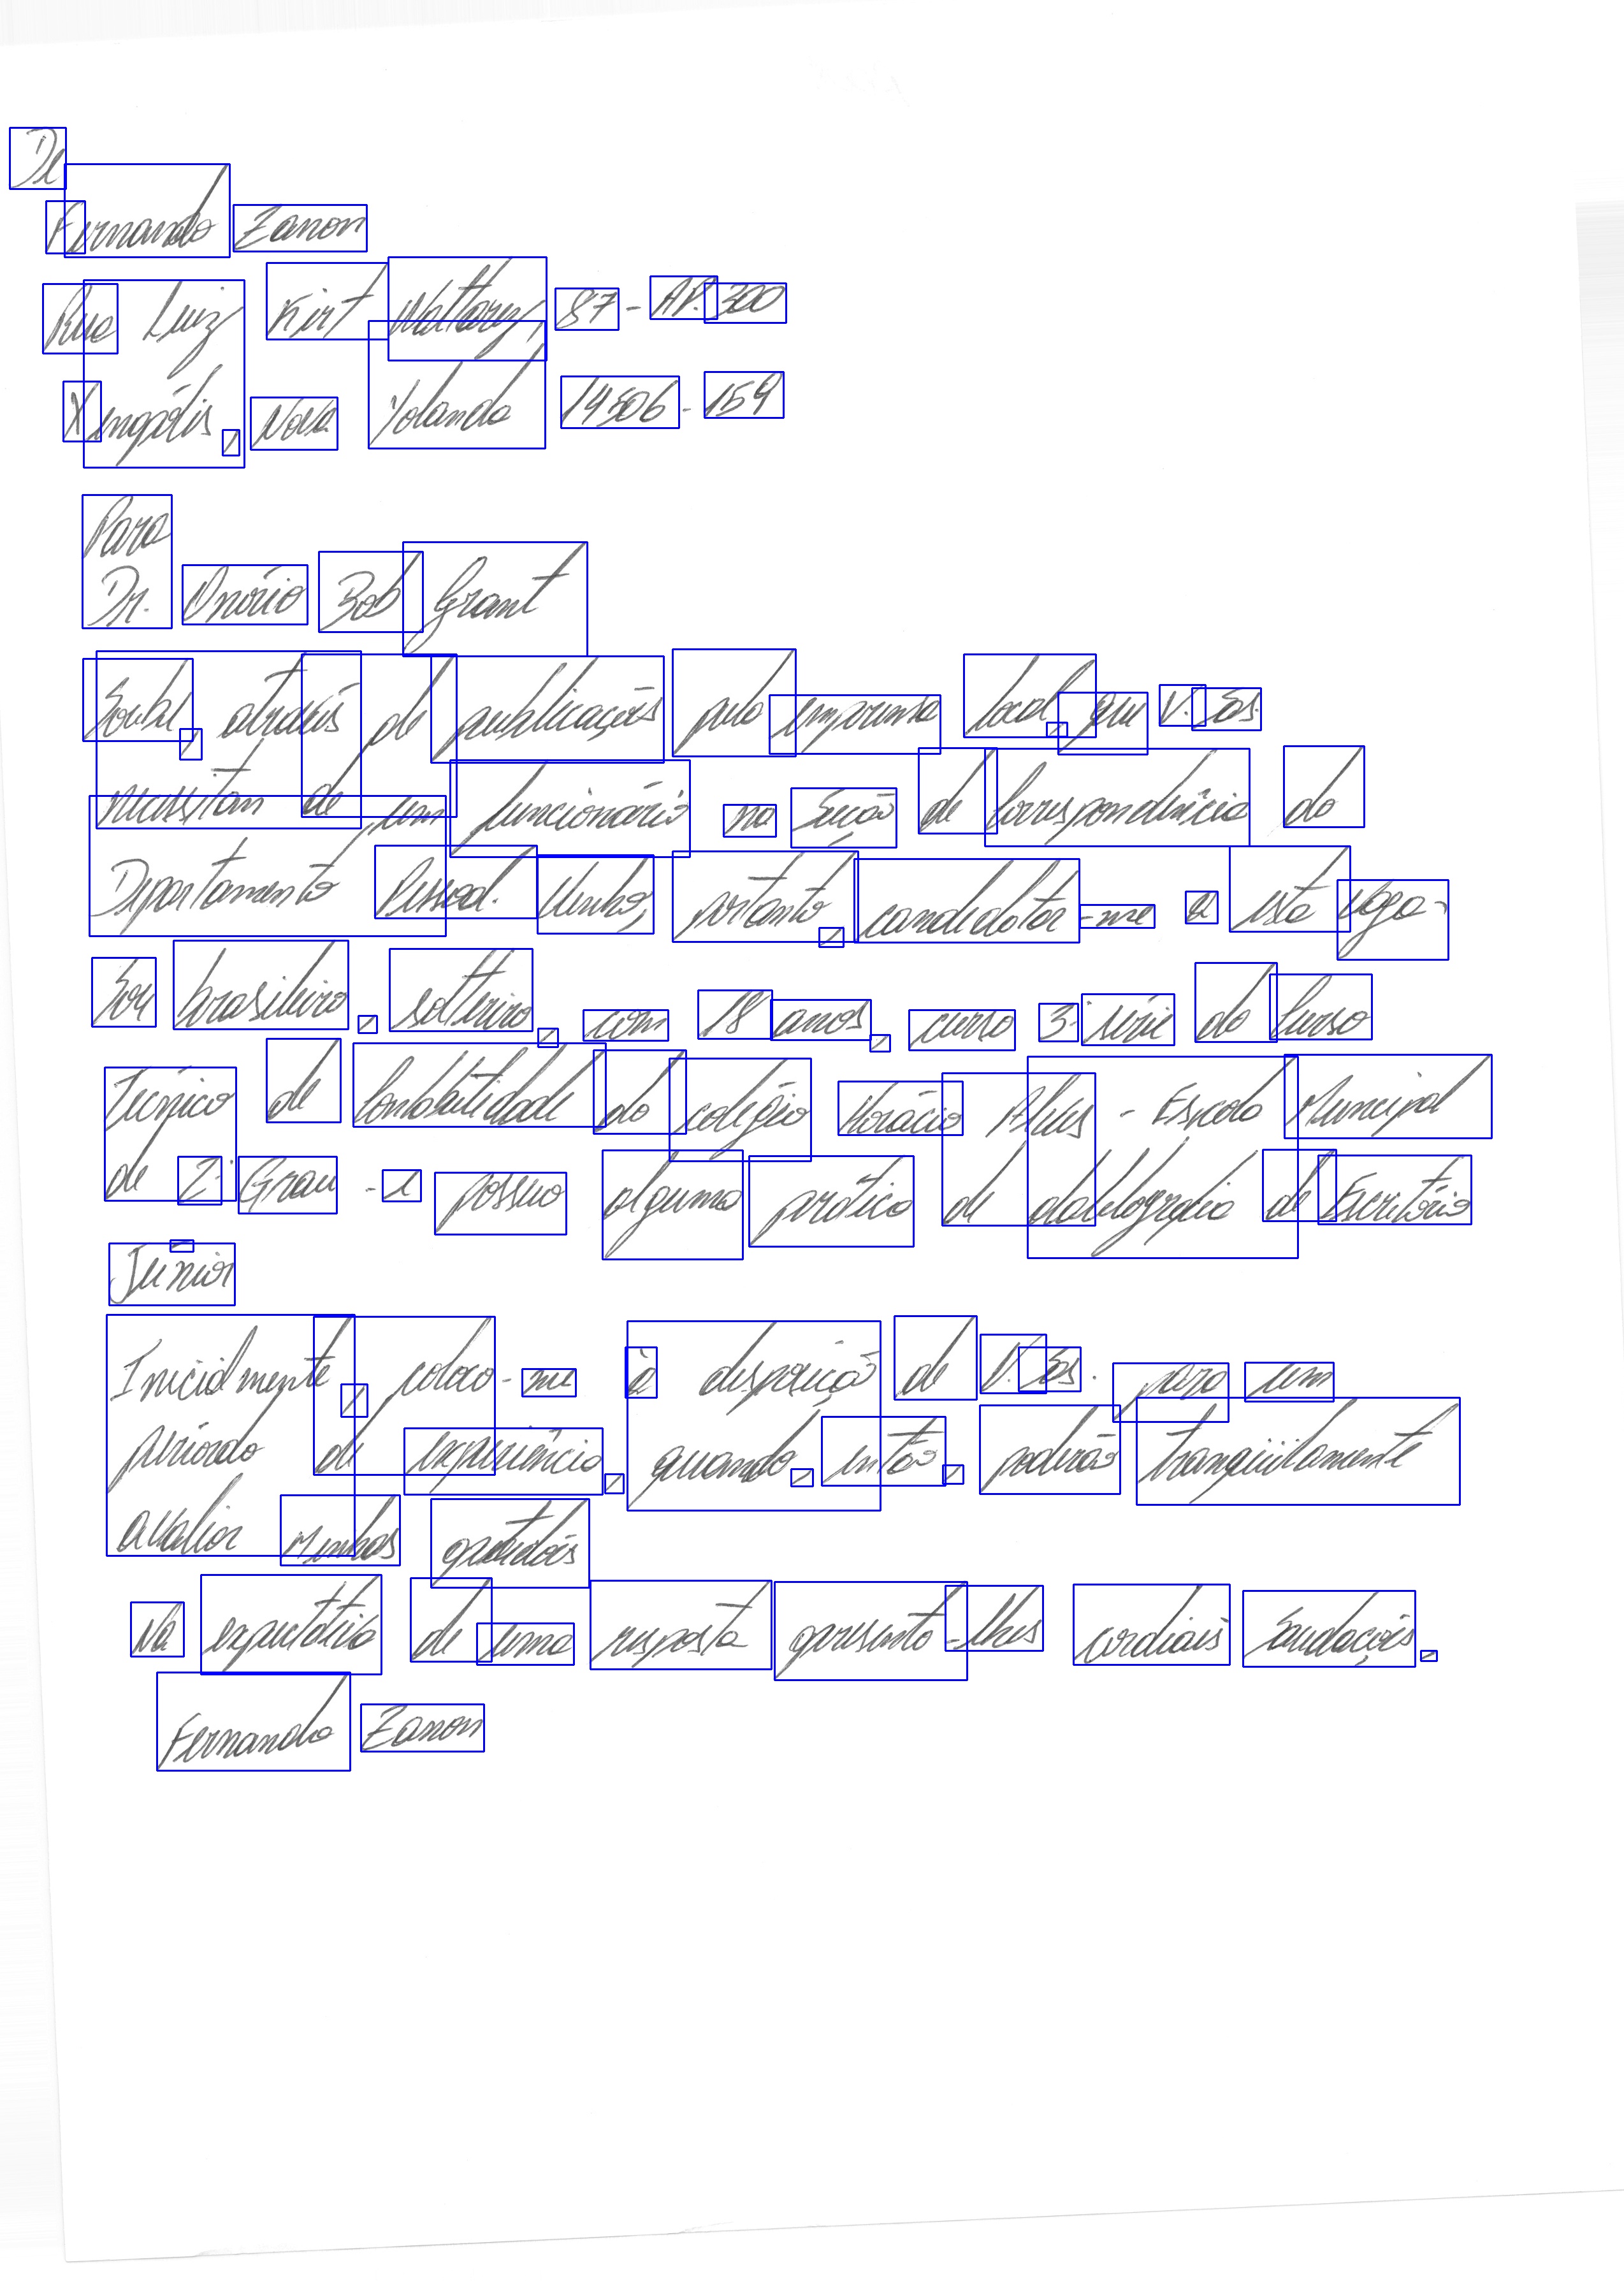 De
Fernando Zanon
Rua Luiz Kirt Wattary, 87 - AP. 300
Xengópolis, Nova Yolanda 14506-159
Para
Dr. Onório Bob Grant
Soube, através de publicações pela imprensa local, que V. Sas.
necessitam de um funcionário na Seção de Correspondência do
Departamento Pessoal. Venho, portanto, candidatar-me a esta vaga.
Sou brasileiro, solteiro, com 18 anos, curso 3ª série do Curso
Técnico de Contabilidade do colégio Horácio Alves - Escola Muncipal
de 2º Grau - e possuo alguma prática de datilografia de Escritório
Júnior
Inicialmente, coloco-me à disposição de V. Sas. para um
período de experiência, quando, então, poderão tranqüilamente
avaliar minhas aptidões
Na expectativa de uma resposta apresento-lhes cordiais Saudações.
Fernando Zanon